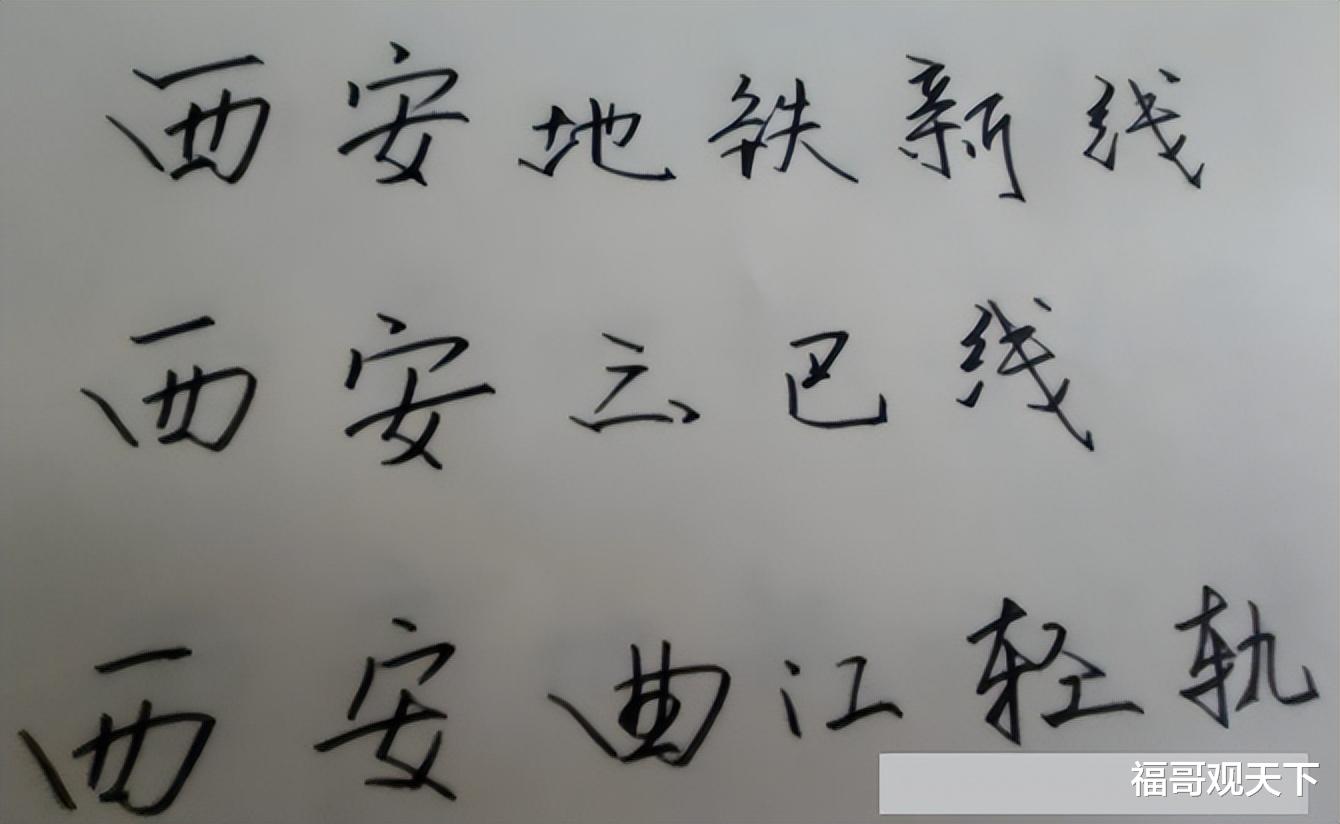 西安地铁新线
西安云巴线
西安曲江轻轨
福哥观天下